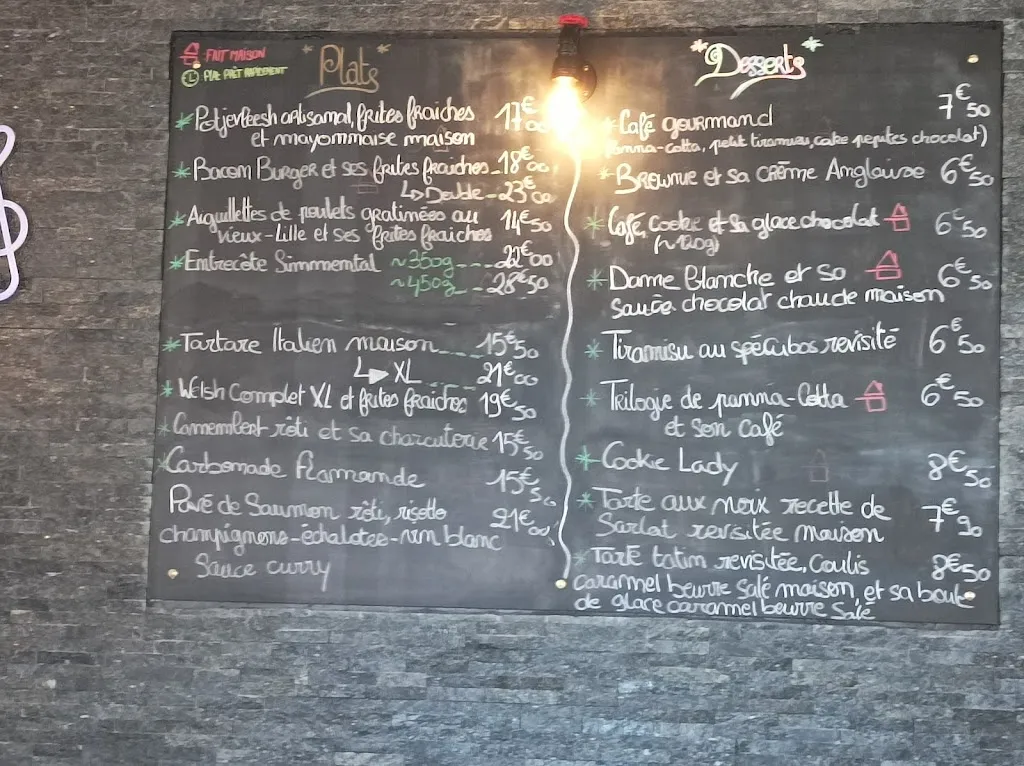 FAIT MAISON
L PLAT PRÊT RAPIDEMENT
Plats
Potjevleesh artisanal, frites fraiches 17€00
et mayonnaise maison
Bacon Burger et ses frites fraiches 18€00
Double 23€00
Aiguillettes de poulets gratinées au 14€50
vieux-Lille et ses frites fraiches
Entrecôte Simmental ~350g 22€00
~450g 28€50
Tartare Italien maison 15€50
XL 21€00
Welsh Complet XL et frites fraiches 19€50
Camembert rôti et sa charcuterie 15€50
Carbonade Flamande 15€50
Pavé de Saumon rôti, risotto 21€00
champignons-échalotes-vin blanc
Sauce curry
Desserts
Café gourmand 7€50
(panna-cotta, petit tiramisu, cake pépites chocolat)
Brownie et sa crème Anglaise 6€50
Café, Cookie et sa glace chocolat 6€50
(~120g)
Dame Blanche et sa 6€50
sauce chocolat chaude maison
Tiramisu au spéculoos revisité 6€50
Trilogie de panna-Cotta 6€50
et son café
Cookie Lady 8€50
Tarte aux noix recette de 7€90
Sarlat revisitée maison
Tarte tatin revisitée, Coulis 8€50
caramel beurre salé maison, et sa boule
de glace caramel beurre salé